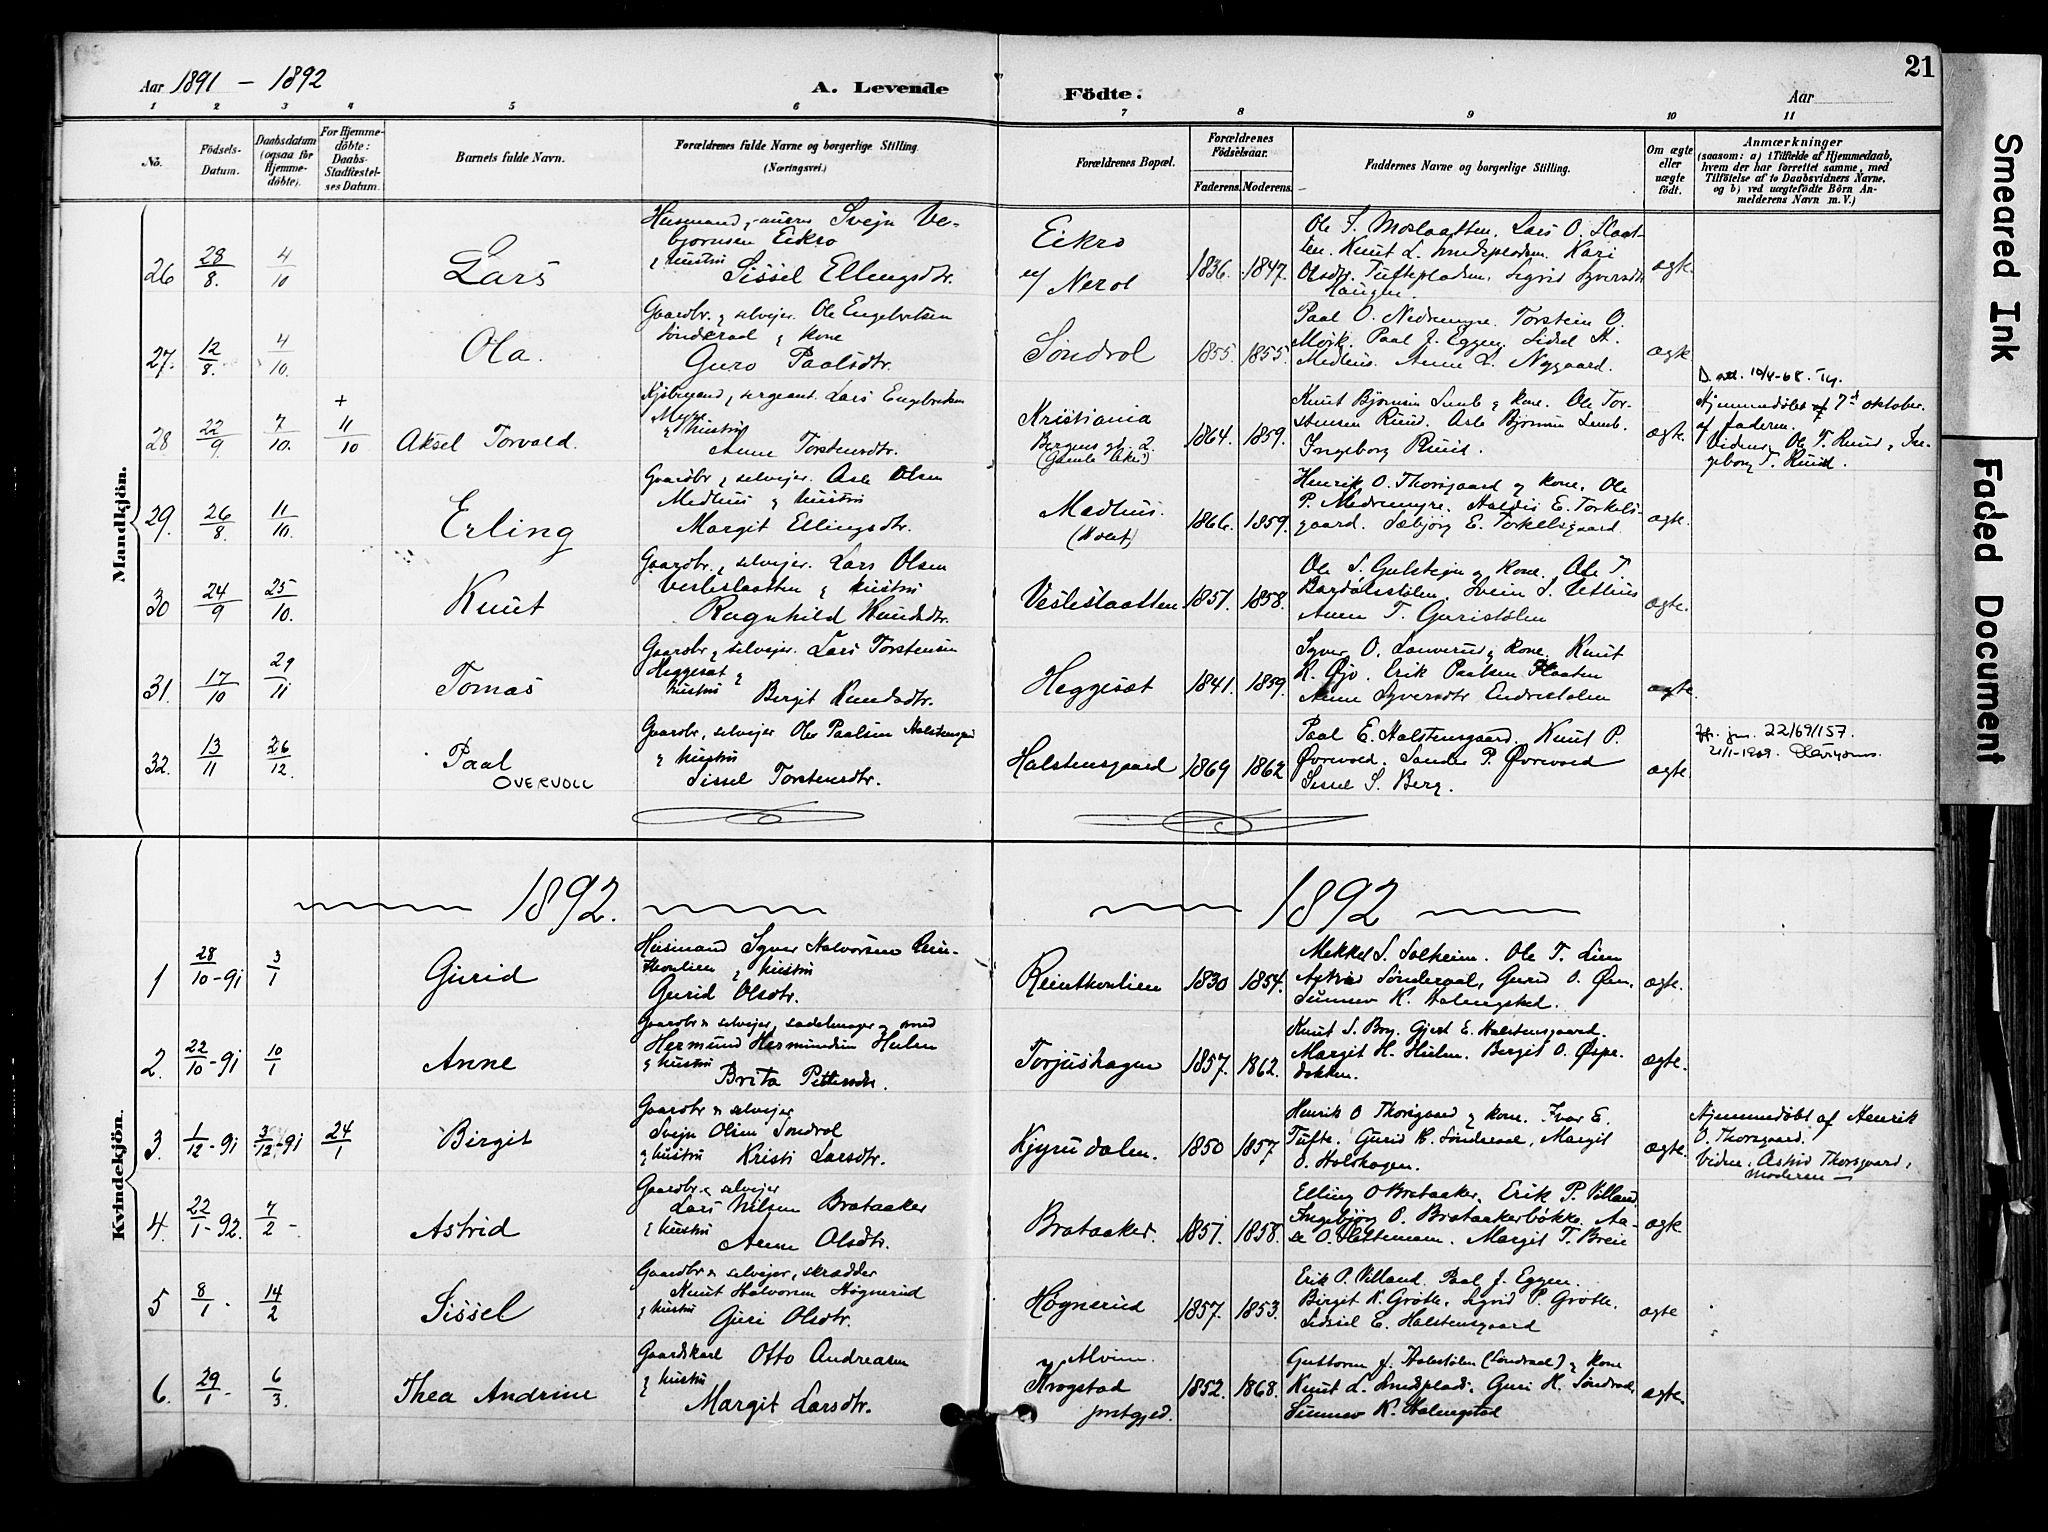 21
Aar 1891 – 1892
A. Levende
Födte.
Aar
1 2 3 4 5 6 7 8 9 10 11
No.
Födsels-
Datum.
Daabsdatum
(ogsaa för
Hjemme-
döbte).
For Hjemme-
döbte:
Daabs-
Stadfæstel-
ses Datum.
Barnets fulde Navn.
Forældrenes fulde Navne og borgerlige Stilling.
(Næringsvei.)
Forældrenes Bopæl.
Forældrenes
Födselsaar.
Faderens. Moderens.
Faddernes Navne og borgerlige Stilling.
Om ægte
eller
uægte
födt.
Anmærkninger
(saasom: a) i Tilfælde af Hjemmedaab,
hvem der har forrettet samme, med
Tilföielse af to Daabsvidners Navne,
og b) ved uægtefödte Börn An-
melderens Navn m. V.)
Mandkjön.
26
28/8.
4/10
Lars
Husmand, Svejn Ve-
bjornsen Eikro
& hustru
Sissel Ellingsdtr.
Eikro
u/ Nerol
1836. 1847.
Ole S. Moslaatten. Lars O. Slaat-
ten. Knut L. Kari
Olsdtr. Tuftepladsen. Sigrid Syversdtr
Haugen.
ægte
27.
12/8.
4/10.
Ola.
Gaardbr. & selvejer. Ole Engebretsen
Sönderaal & kone
Guro Paalsdtr.
Söndrol
1855. 1855.
Paal O. Nedremyre. Torstein O.
Mørk. Paal J. Eggen. Sidsel A.
Medhus. Anne L. Nygaard.
ægte
D. 10/4-68.
28
22/9
7/10.
+
11/10
Aksel Torvald.
Kjøbmand, sergeant. Lars Engebretsen
Myre
& hustru
Anne Torstensdtr.
Kristiania
Bergens gd. 2.
(Gamle Aker)
1864. 1859.
Knut Bjørnsen Semb & kone. Ole Tor-
stensen Ruud. Asle Bjørnsen Semb.
Ingeborg Ruud.
ægte.
Hjemmedøbt 7de oktober.
af faderen.
Vidner Ole T. Ruud & In-
geborg T. Ruud.
29.
26/8.
11/10.
Erling
Gaardbr & selvejer. Asle Olsen
Medhus & hustru
Margit Ellingsdtr.
Medhus.
(Hovet)
1866. 1859.
Henrik O. Thorsgaard & kone. Ole
P. Nedremyre. Haldis E. Torkels-
gaard. Sebjørg E. Torkelsgaard
ægte.
30
24/9
25/10.
Knut
Gaardbr. & selvejer. Lars Olsen
Vesleslaatten & hustru
Ragnhild Knudsdtr.
Vesleslaatten
1857. 1858.
Ole S. Gulstejn & kone. Ole T.
Bardølsstølen. Svein S. Vethus
Anne T. Guristølen
ægte.
31.
17/10
29/11
Tomas
Gaardbr & selvejer. Lars Torstensen
Heggesæt &
hustru
Birgit Knudsdtr.
Heggesæt
1841. 1859.
Syver O. Lauverud & kone. Knut
K. Øjo. Erik Paalsen Slaaten
Anne Syversdtr Endrestølen
ægte.
32.
13/11
26/12.
Paal
OVERVOLL
Gaardbr. selvejer Ole Paalsen Halstensgard
& hustru
Sissel Torstensdtr.
Halstensgaard
1869 1862
Paal E. Halstensgaard. Knut P.
Øvrevold. Sander P. Øvrevold
Sissel S. Berg.
ægte.
22/69/157.
21/1-1969.
Kvindekjön.
1892.
1892
1
28/10 - 91
3/1
Gurid
Husmand Syver Halvorsen Rein-
thonlien & hustru
Gurid Olsdtr.
Reintkonlien
1830 1854.
Mekkel S. Solheim. Ole T. Lien
Astrid Sønderaal, Gurid O. Øen.
Sunnev K. Halmgstad.
ægte.
2.
22/10 - 91
10/1
Anne
Gaardbr & selvejer, sadelmager & smed
Hermund Hermundsen Hulen
& hustru
Brita Pettersdtr.
Torjushagen
1857. 1862.
Knut S. Bry. Gjert E. Halstensgaard.
Margit H. Hulen. Birgit O. Øspe-
dokken.
ægte.
3.
1/12 - 91
3/12 - 91
24/1
Birgit
Gaardbr & selvejer
Svejn Olsen Sondrol
& hustru Kristi Larsdtr.
Kjyrudalen.
1850 1857
Henrik O Thorsgaard & kone. Ivar E.
Tufte. Gurid K. Søndreaal, Margit
O. Holshagen.
ægte.
Hjemmedøbt af Henrik
O. Thorsgaard.
Vidne. Astrid Thorsgaard,
Moderen
4.
22/1 - 92.
7/2 -
Astrid
Gaardbr & selvejer
Lars Nilsen Brataaker
& hustru
Anne Olsdtr.
Brataaker.
1857. 1858.
Elling O Brataaker. Erik P. Villand.
Ingebjørg O. Brataakerbøkke. Aa-
se O. Hettemoen. Margit T. Breie
ægte
5
8/1 -
14/2
Sissel
Gaardbr & selvejer, skrædder
Knut Halvorsen Høgnerud
& hustru
Guri Olsdtr.
Høgnerud
1857. 1853.
Erik P. Villand. Paal J. Eggen.
Birgit K. Grøtte, Sigrid P. Grøtte.
Sidsel E. Halstensgaard
ægte
6.
29/1 -
6/3.
Thea Andrine
Gaardskarl Otto Andreasen
& hustru
Margit Larsdtr.
Krogstad
prstgjed.
1852. 1868.
Guttorm J. (Søndraal) & kone
Knut L. Guri H. Søndraal,
Sunnev K. Halmgstad
ægte.
Smeared Ink
Faded Document